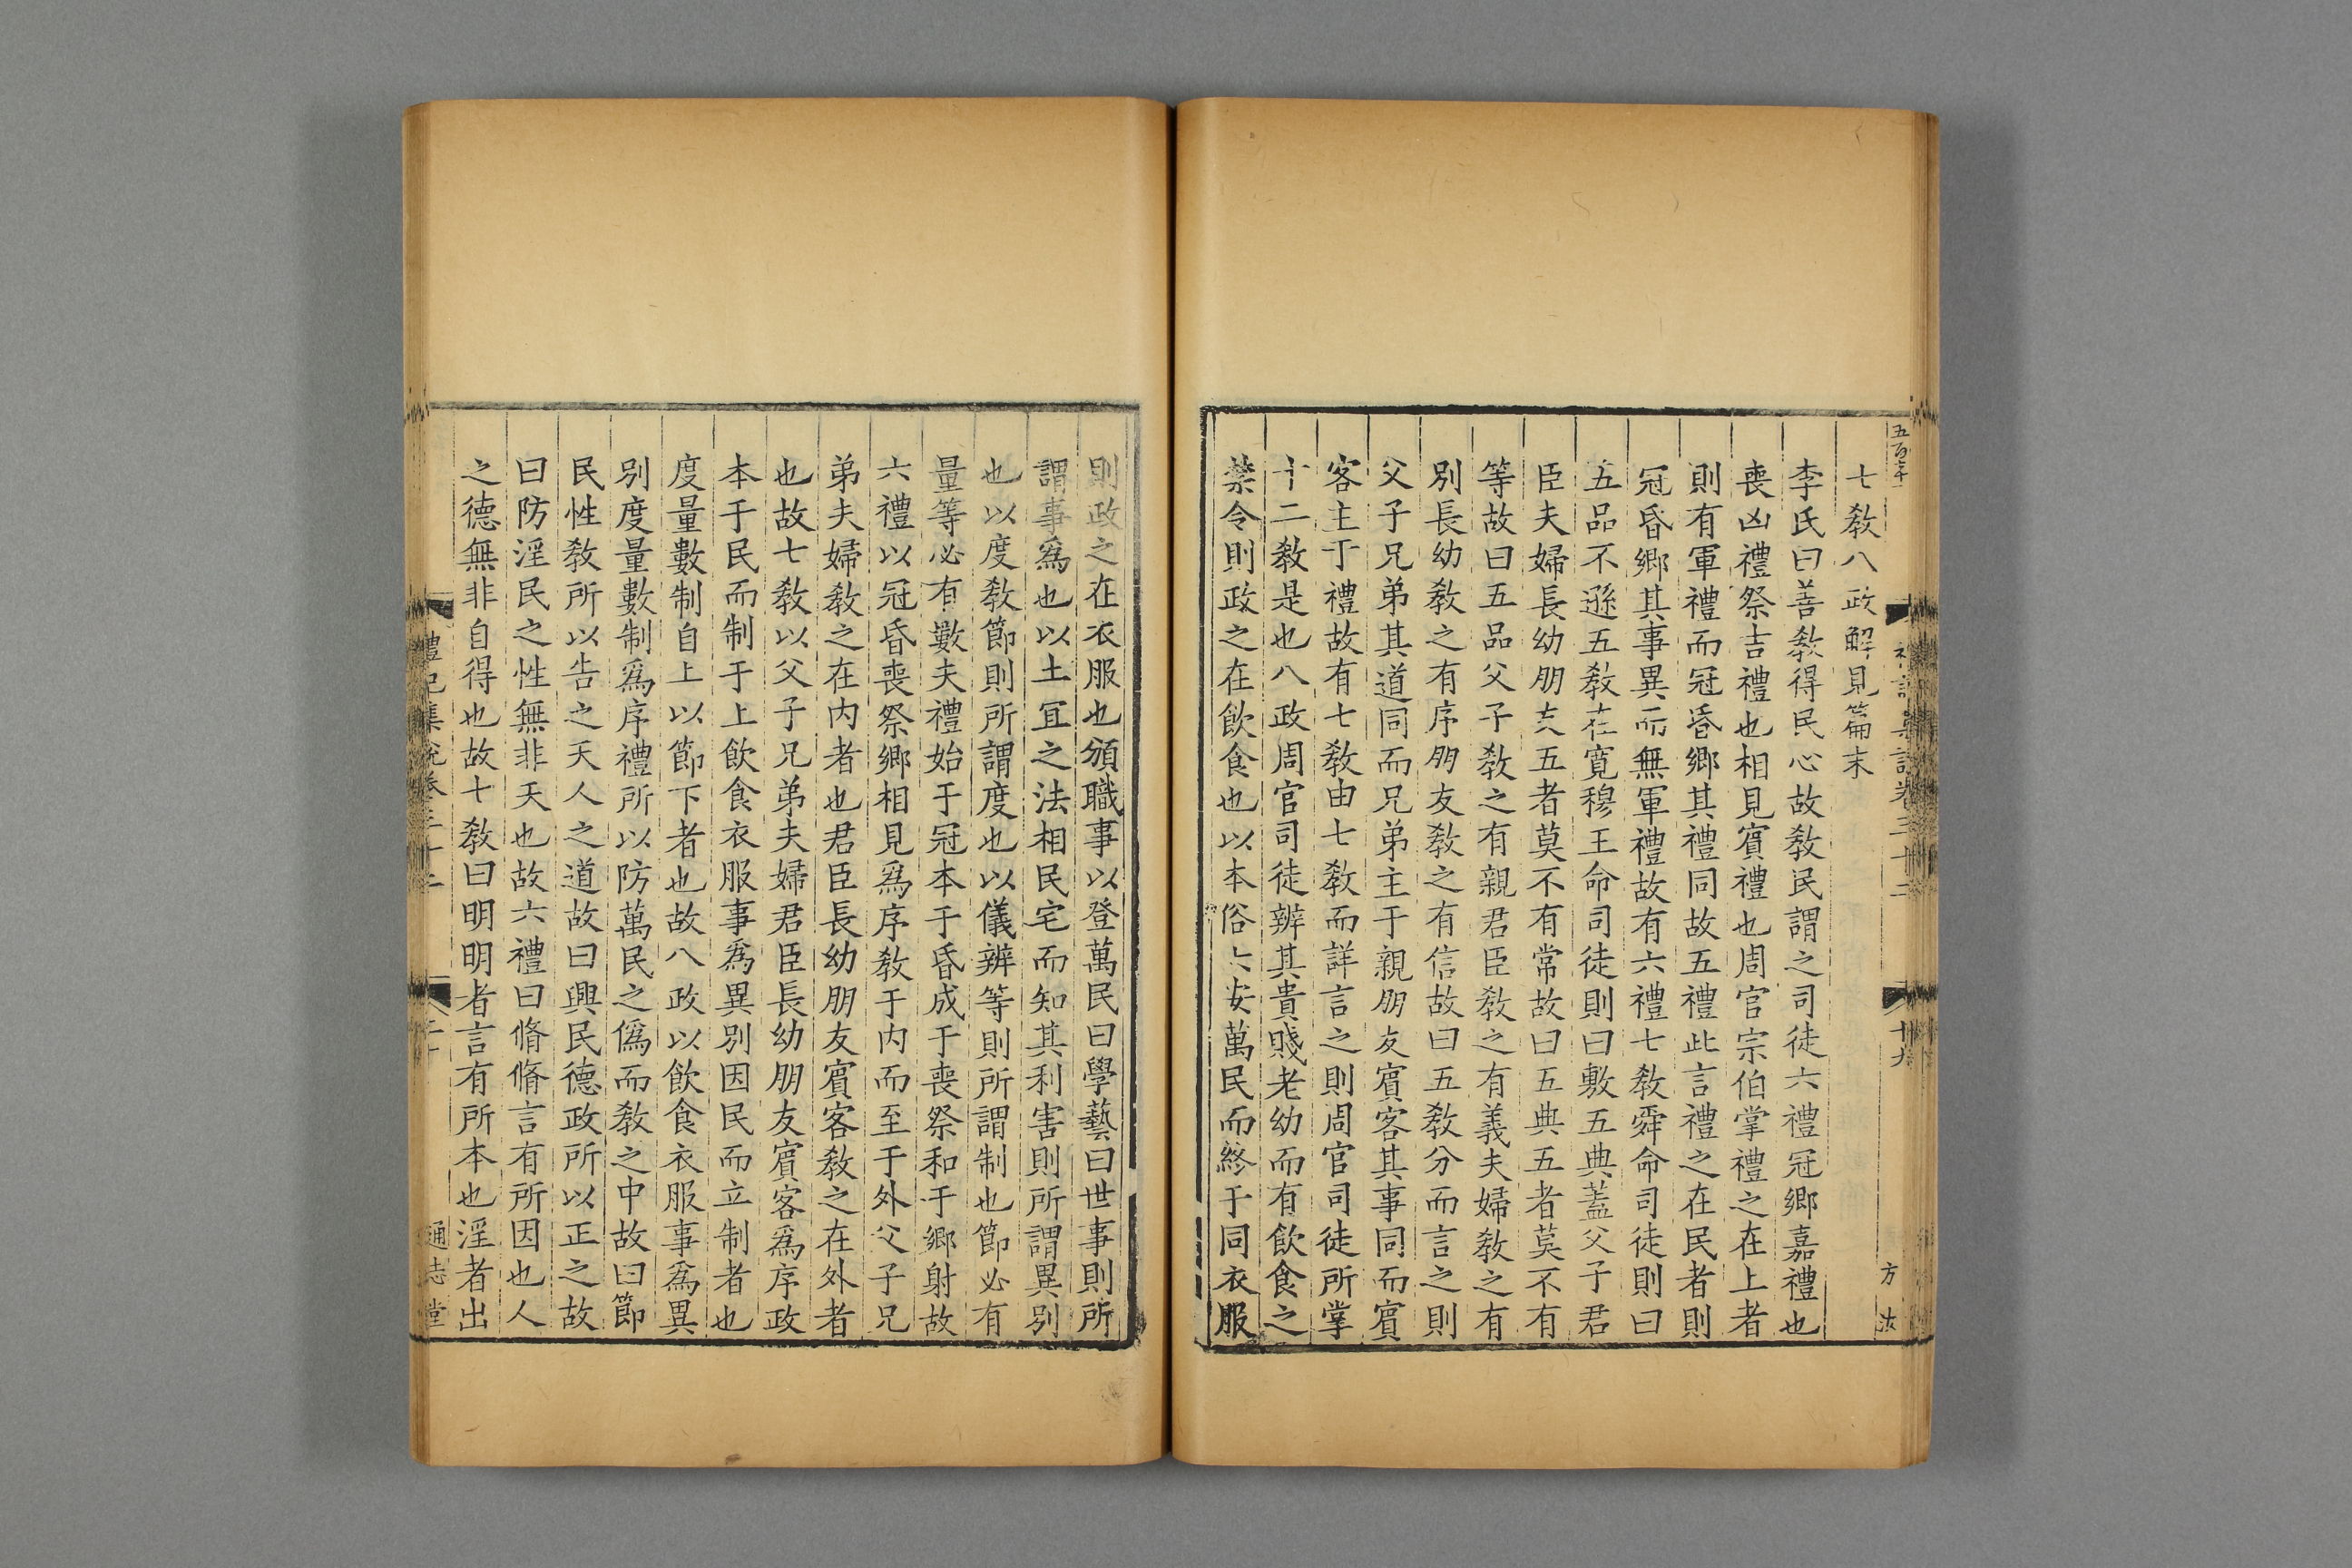 七教八政解見篇末
李氏曰善教得民心故教民謂之司徒六禮冠鄉嘉禮也
喪凶禮祭吉禮也相見賓禮也周官宗伯掌禮之在上者
則有軍禮而冠昏鄉其禮同故五禮此言禮之在民者則
冠昏鄉其事異而無軍禮故有六禮七教舜命司徒則曰
五品不遜五教在寬穆王命司徒則曰敷五典蓋父子君
臣夫婦長幼朋友五者莫不有常故曰五典五者莫不有
等故曰五品父子教之有親君臣教之有義夫婦教之有
別長幼教之有序朋友教之有信故曰五教分而言之則
父子兄弟其道同而兄弟主于親朋友賓客其事同而賓
客主于禮故有七教由七教而詳言之則周官司徒所掌
十二教是也八政周官司徒辨其貴賤老幼而有飲食之
禁令則政之在飲食也以本俗六安萬民而終于同衣服
十九
方
則政之在衣服也頒職事以登萬民曰學藝曰世事則所
謂事爲也以土宜之法相民宅而知其利害則所謂異別
也以度教節則所謂度也以儀辨等則所謂制也節必有
量等必有數夫禮始于冠本于昏成于喪祭和于鄉射故
六禮以冠昏喪祭鄉相見爲序教于内而至于外父子兄
弟夫婦教之在内者也君臣長幼朋友賓客教之在外者
也故七教以父子兄弟夫婦君臣長幼朋友賓客爲序政
本于民而制于上飲食衣服事爲異別因民而立制者也
度量數制自上以節下者也故八政以飲食衣服事爲異
別度量數制爲序禮所以防萬民之僞而教之中故曰節
民性教所以告之天人之道故曰興民德政所以正之故
曰防淫民之性無非天也故六禮曰脩脩言有所因也人
之德無非自得也故十教曰明明者言有所本也淫者出
禮記集說卷三十二
通志堂